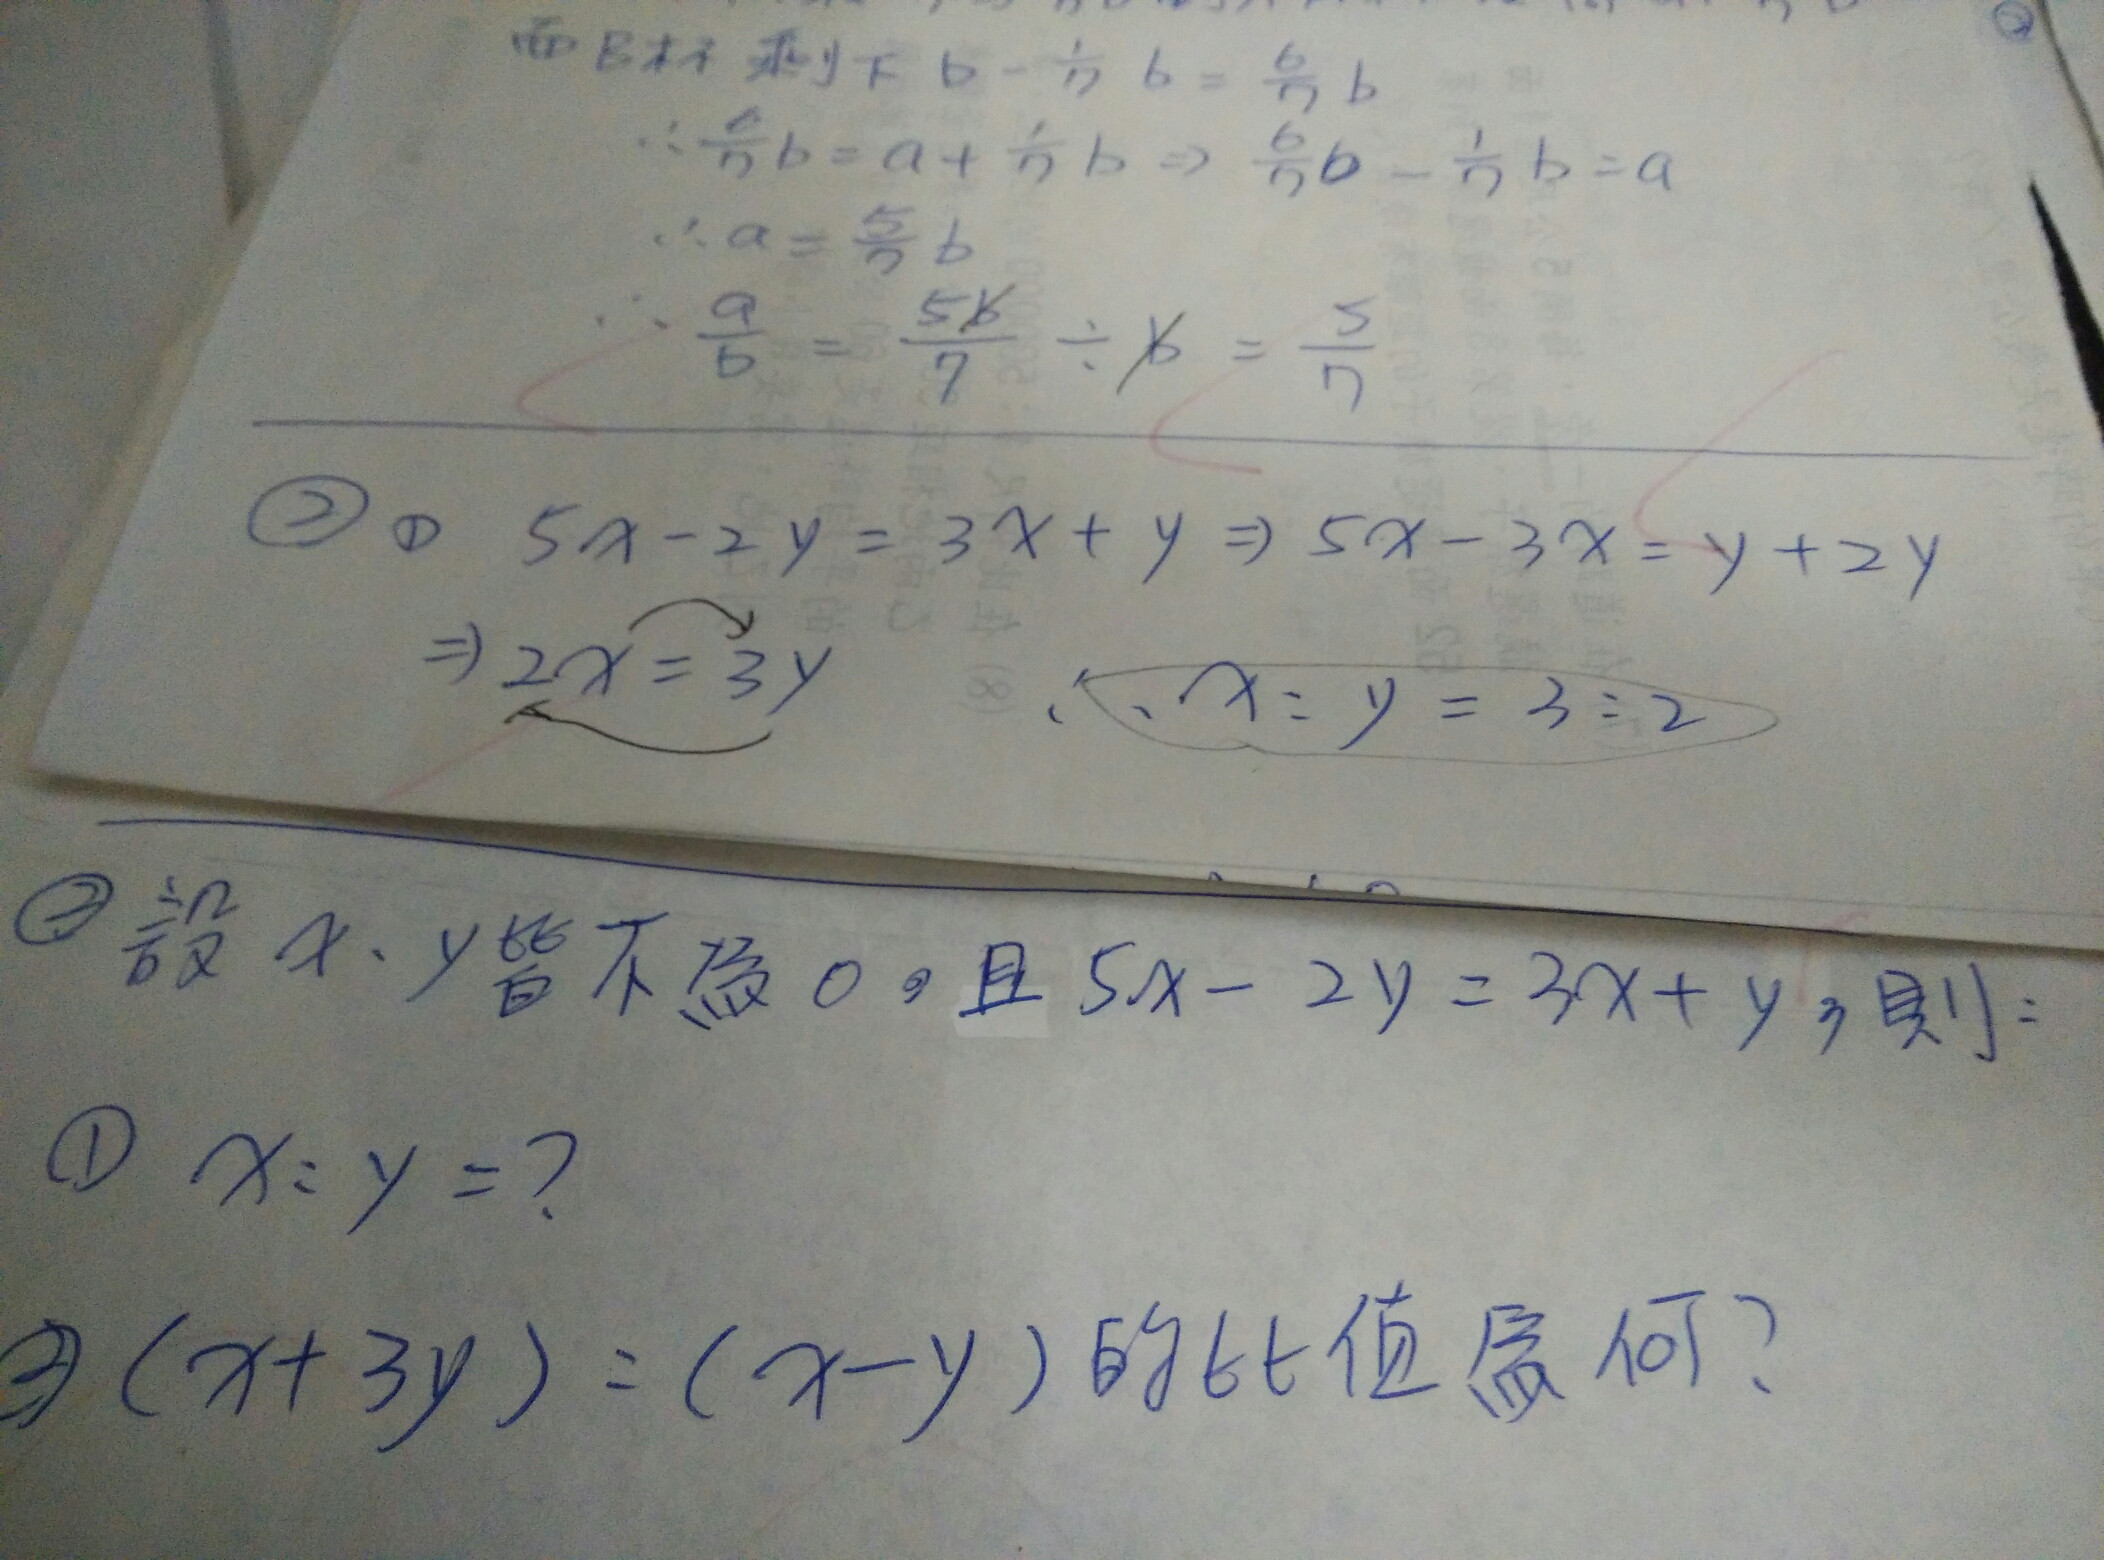 而B杯剩下 b - 1/7 b = 6/7 b
∴ 6/7 b = a + 1/7 b ⇒ 6/7 b - 1/7 b = a
∴ a = 5/7 b
∴ a/b = 5b/7 ÷ b = 5/7
② ① 5x - 2y = 3x + y ⇒ 5x - 3x = y + 2y
⇒ 2x = 3y ∴ x : y = 3 : 2
② 設 x、y皆不為 0。且 5x - 2y = 3x + y, 則:
① x : y = ?
② (x + 3y) : (x - y) 的比值為何?